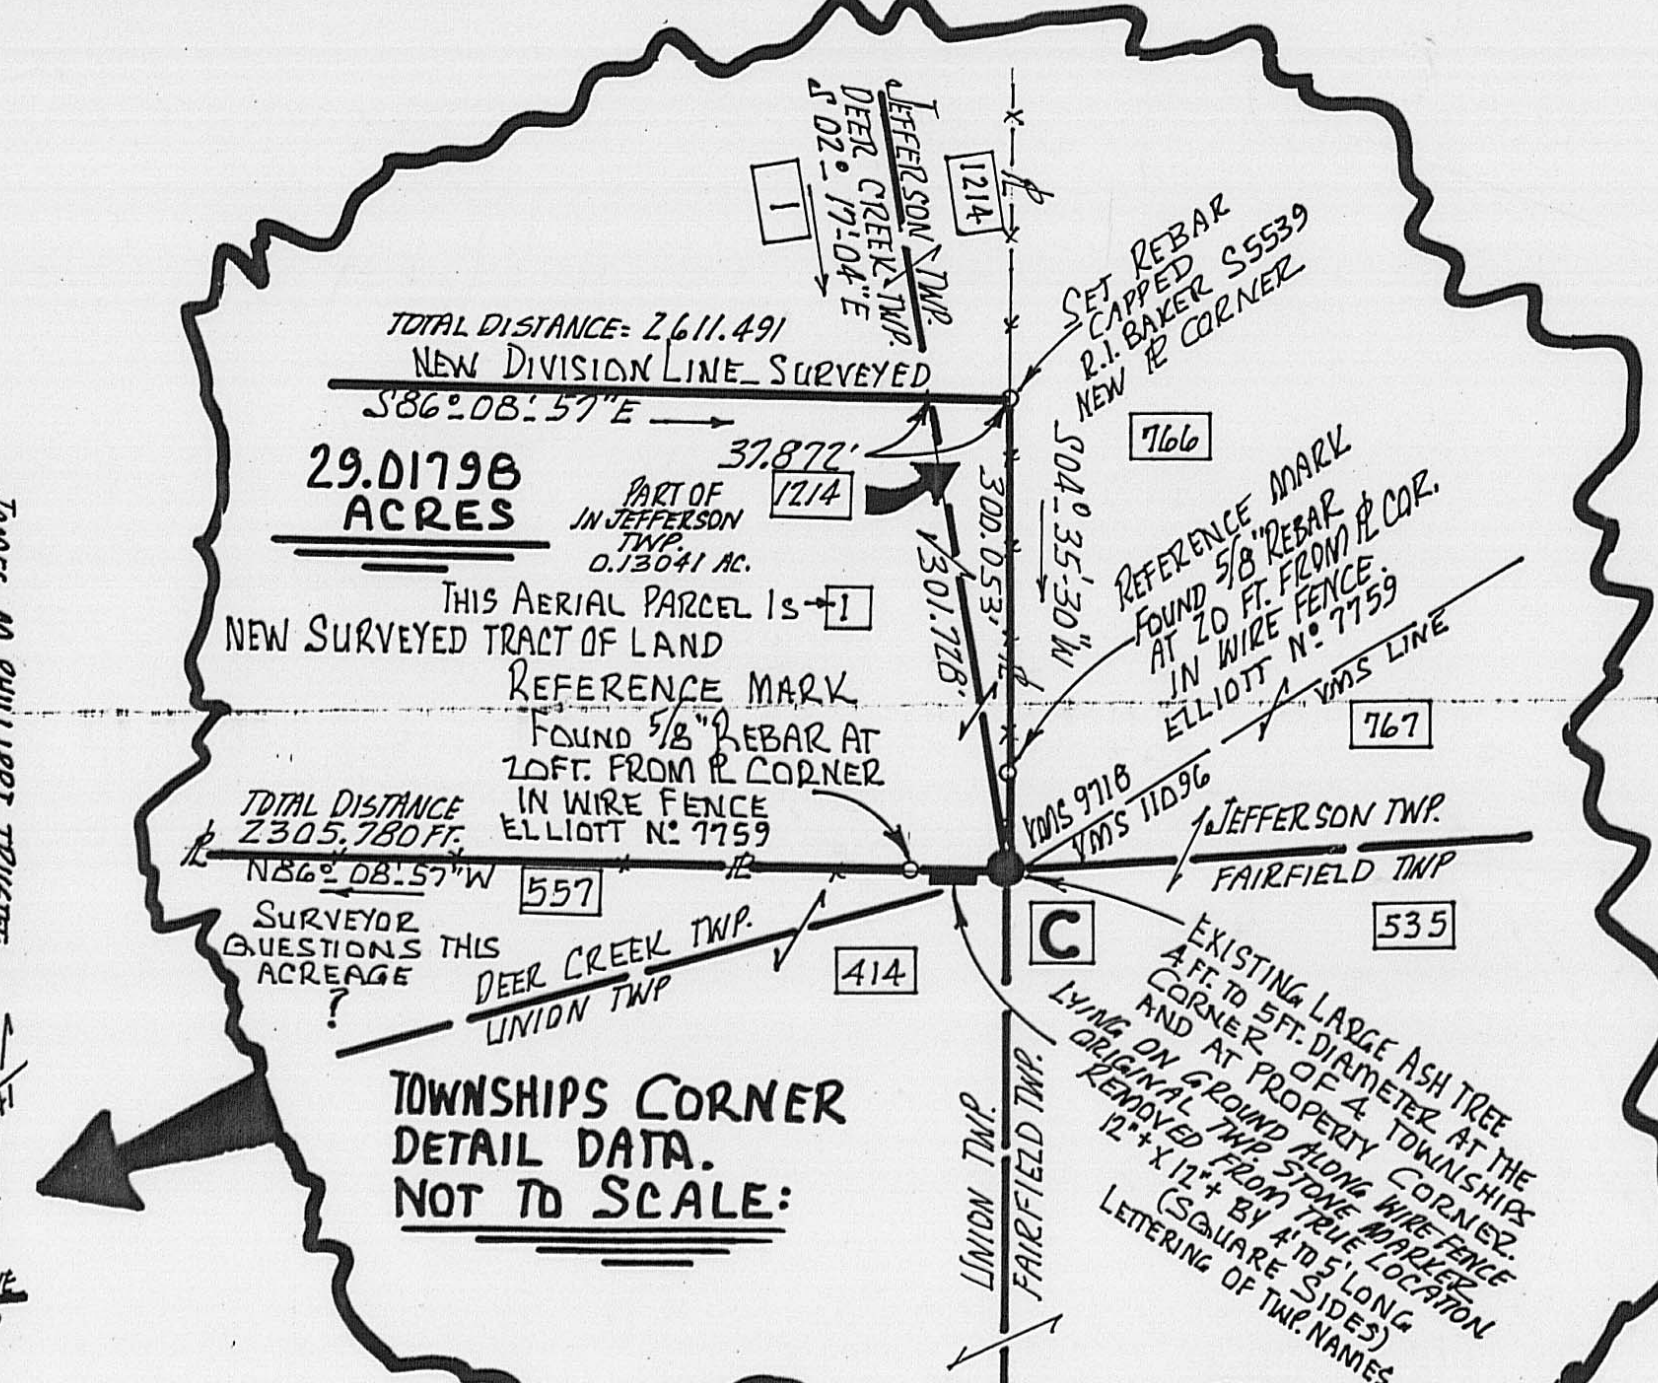 JEFFERSON TWP.
DEER CREEK TWP.
S 02º 17'-04"E
1
1214
PL
SET REBAR
CAPPED
R.I. BAKER S5539
NEW PL CORNER
TOTAL DISTANCE= 2,611.491
NEW DIVISION LINE SURVEYED
S86º-08'-57"E
37.872'
766
29.01798
ACRES
PART OF
1214
IN JEFFERSON
TWP.
0.13041 AC.
300.053'
S04º-35'-30"W
301.728'
REFERENCE MARK
FOUND 5/8" REBAR
AT 20 FT. FROM PL COR.
IN WIRE FENCE.
ELLIOTT Nº 7759
THIS AERIAL PARCEL IS 1
NEW SURVEYED TRACT OF LAND
PL
REFERENCE MARK
FOUND 5/8" REBAR AT
20FT. FROM PL CORNER
IN WIRE FENCE
ELLIOTT Nº 7759
VMS LINE
767
VMS 9718
VMS 11096
TOTAL DISTANCE
2305.780FT.
PL
PL
N86º-08'-57"W
557
JEFFERSON TWP.
FAIRFIELD TWP
535
SURVEYOR
QUESTIONS THIS
ACREAGE
?
DEER CREEK TWP.
UNION TWP
414
C
EXISTING LARGE ASH TREE
4 FT. TO 5 FT. DIAMETER AT THE
CORNER OF 4 TOWNSHIPS
AND AT PROPERTY CORNER.
LYING ON GROUND ALONG WIRE FENCE
ORIGINAL TWP. STONE MARKER
REMOVED FROM TRUE LOCATION
12"+ X 12"+ BY 4' TO 5' LONG
(SQUARE SIDES)
LETTERING OF TWP. NAMES
UNION TWP.
FAIRFIELD TWP.
TOWNSHIPS CORNER
DETAIL DATA.
NOT TO SCALE: